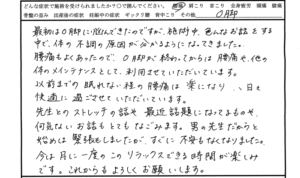 どんな症状で施術を受けられましたか?○で囲んでください。 腰痛 肩こり 首こり 全身疲労 頭痛 膝痛
骨盤の歪み 出産後の症状 妊娠中の症状 ギックリ腰 背中こり その他 O脚
最初はO脚に悩んできたのですが、施術中、色んなお話をする
中で、体の不調の原因が分かるようになってきました。
腰痛もよくあったので、O脚が終わってからは腰痛や、他の
体のメインテナンスとして、利用させていただいています。
以前までの眠れない程の腰痛は楽になり、日々
快適に過ごさせていただいています。
先生とのストレッチの話や最近話題になってるものや、
何気ないお話もとてもなごみます。男の先生だからと
始めは緊張をしましたが、すぐに不安もなくなりました。
今は月に一度のこのリラックスできる時間が楽しみ
です。これからもよろしくお願いします。